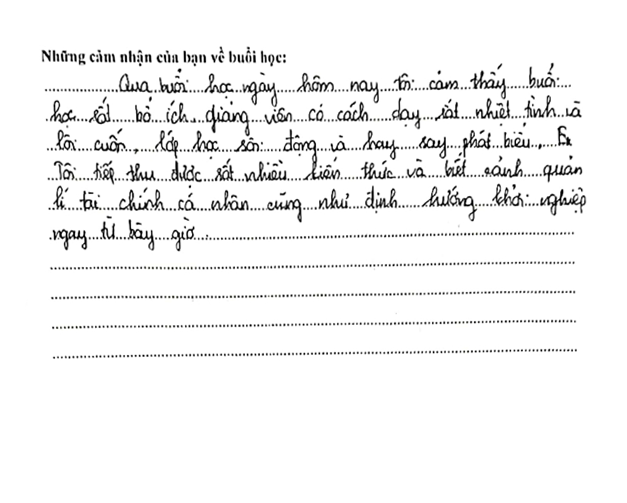 Những cảm nhận của bạn về buổi học:
Qua buổi học ngày hôm nay tôi cảm thấy buổi
học rất bổ ích, giảng viên có cách dạy rất nhiệt tình và
lôi cuốn, lớp học sôi động và hay say phát biểu.
Tôi tiếp thu được rất nhiều kiến thức và biết cánh quản
lí tài chính cá nhân cũng như định hướng khởi nghiệp
ngay từ bây giờ.